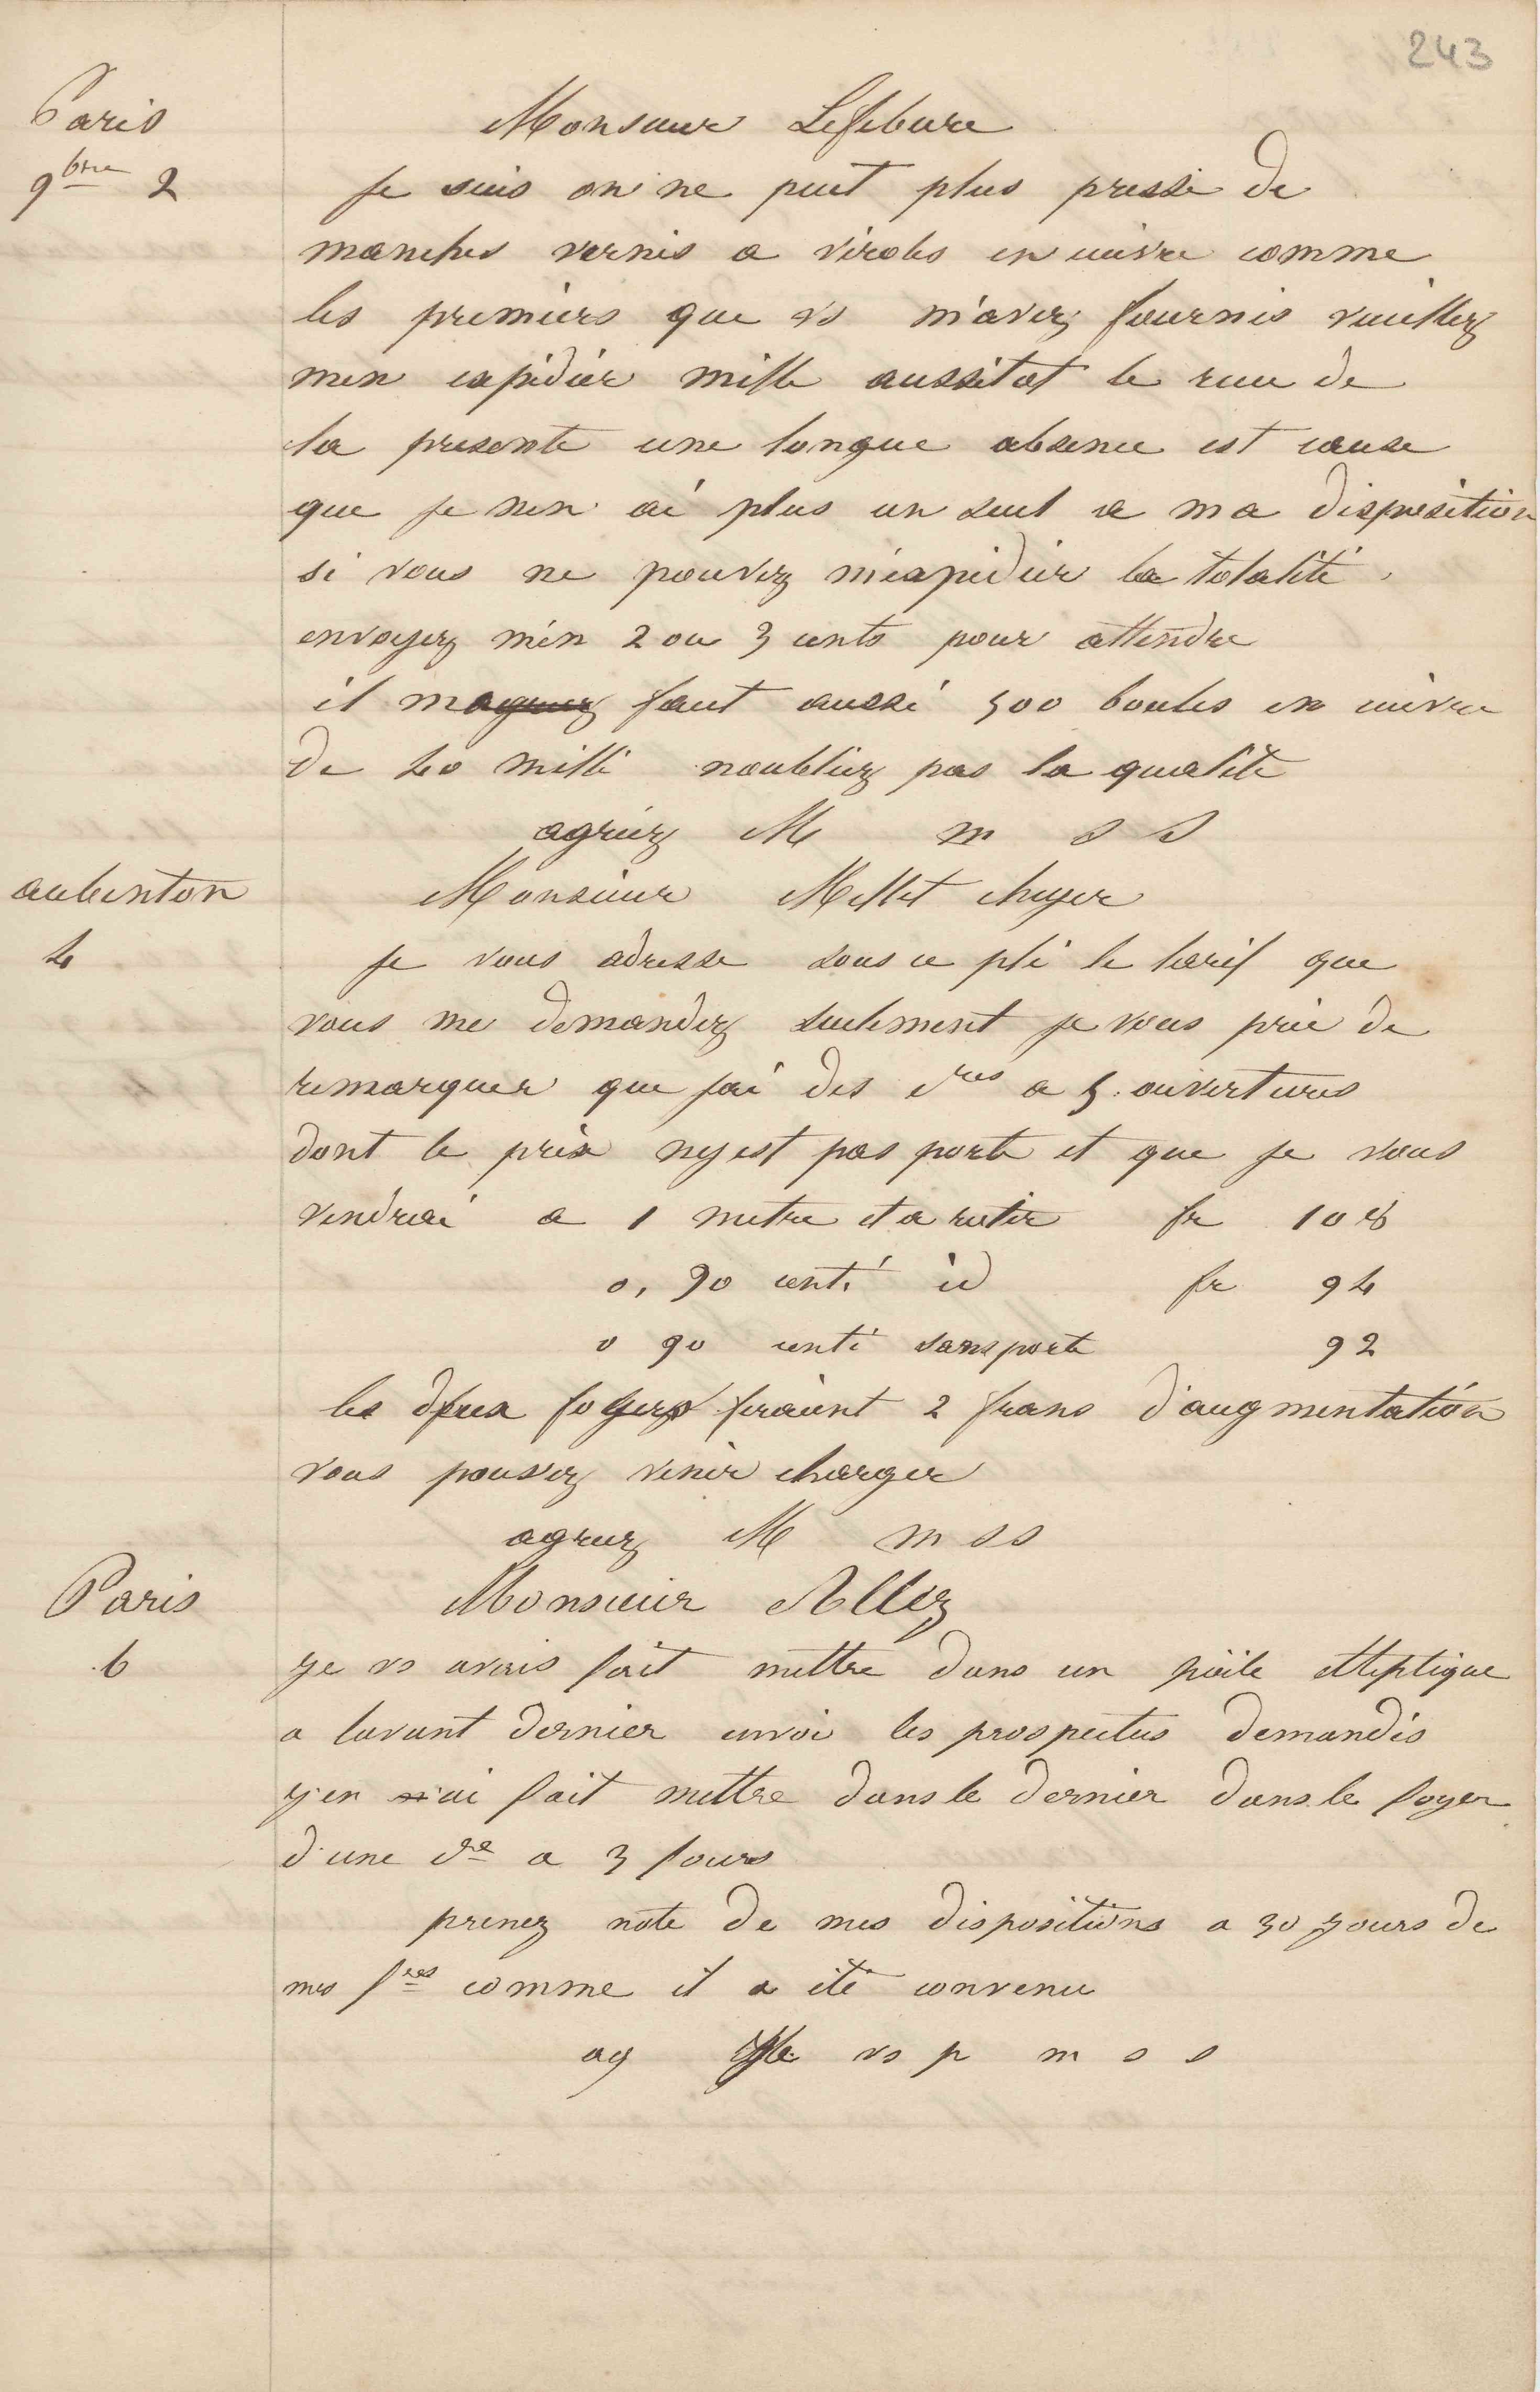 243
Paris
9bre 2
Monsieur Lefebure
je suis on ne peut plus pressé de
manches vernis a viroles en cuivre comme
les premiers que vs m'avez fournis veuillez
men expédier mille aussitot le recu de
la presente une longue absence est cause
que je nen ai plus un seul a ma disposition
si vous ne pouvez m'expédier la totalité
envoyez m'en 2 ou 3 cents pour attendre
il m faut aussi 500 boules en cuivre
de 40 milli noubliez pas la qualité
agréez M m s s
aubenton
4
Monsieur Millet
je vous adresse sous ce pli le tarif que
vous me demandez seulement je vous prie de
remarquer que j'ai des cres a 5 ouvertures
dont le prix ny est pas porté et que je vous
vendrai a 1 metre et a rotir fr 108
0, 90 centi id fr 94
0 90 centi sans porte 92
les deux foyers feraient 2 frans d'augmentation
vous pouvez venir charger
agreez M m s s
Paris
6
Monsieur Allez
je vs avais fait mettre dans un poile elleptique
a lavant dernier envoi les prospectus demandés
j'en ai fait mettre dans le dernier dans le foyer
d'une cre a 3 fours
prenez note de mes dispositions a 30 jours de
mes fres comme il a été convenu
ag vs p m s s